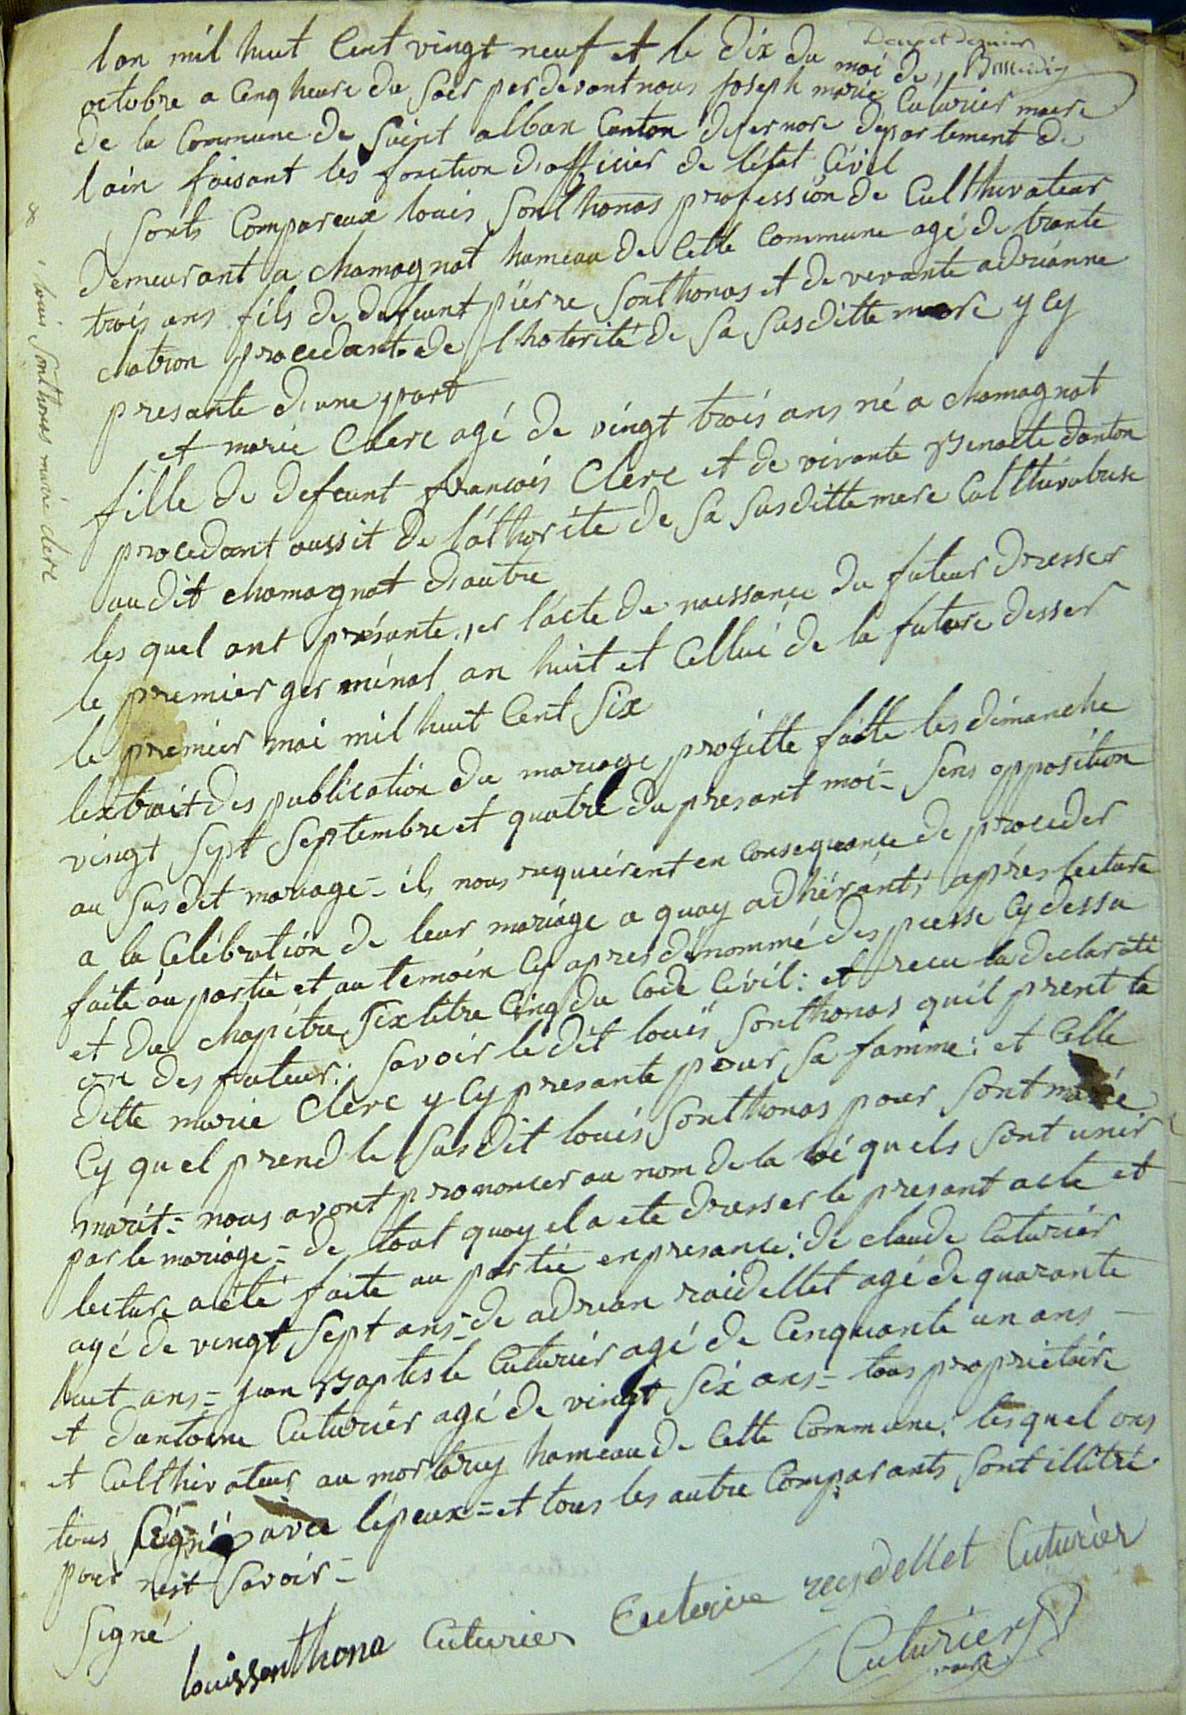 Deux et dernier
lan mil huit Cent vingt neuf et le dix du moi de
octobre a Cinq heure du Soir perdevantnous Joseph marie Cuturier maire
de la Commune de Saint alban Canton de departement de
lain faisant les fonction d'officier de létat Civil
Sonts Compareux louis Sonthonas profession de Culthivateur
demeurant a chamagnat hameau de Cette Commune agé de trante
trois ans fils de defeunt piérre Sonthonas et de vevante adriánne
chatron procedant de lhotorité de Sa Susditte mere y Cy
presante d'une part
et marie Clerc agé de vingt trois ans né a chamagnat
fille de defeunt francois Clerc et de vivante Benoite danton
procedant aussit de l'áthorite de Sa Susditte mere Culthivatrise
audit chamagnat d'autre
les quel ont présanté 1er lácte de naissance du futeur dresser
le premier germinal an huit et Cellui de la future desser
le premier mai mil huit Cent Six
lextrait des publication du mariage projitte faitte les dimanche
vingt Sept Septembre et quatre du presant moi= Sens opposition
au Susdit mariage= ils nous requierent en Consequance de proceder
a la Célébration de leur mariage a quoy adhérant; aprés lecture
faite au partie et au temoin Cy apres dénommé des piesse Cy dessu
et du chapitre Six titre Cinq du Code Civil: et recu la declarati
on des futeur: Savoir le dit louis Sonthonas quil prent la
ditte marie Clerc y Cy presante pour Sa famme: et Celle
Cy quel prend le Susdit louis Sonthonas pour Sont marié
marit= nous avont prononcer au nom de la loi quels Sont unir
par le mariage= de tout quoy el a ete dresser le presant acte et
lecture a été faite au partie enpresance: de claude Cuturier
agé de vingt Sept ans= de adrian raidellet agé de quarante
huit ans= jean Baptiste Cuturier agé de Cenquante un ans
et dantoine Cuturiér agé de vingt Six ans= tous proprietaire
et Culthivateur au mortarey hameau de Cette Commune: lesquel ons
tous Signé avec lépeux= et tous les autre Comparants Sont illitré
pour nest Savoir=
Signé
louissonthona Cuturier Cuturier reydellet Cuturier
Cuturier
maire
louis Sonthonas marie clerc